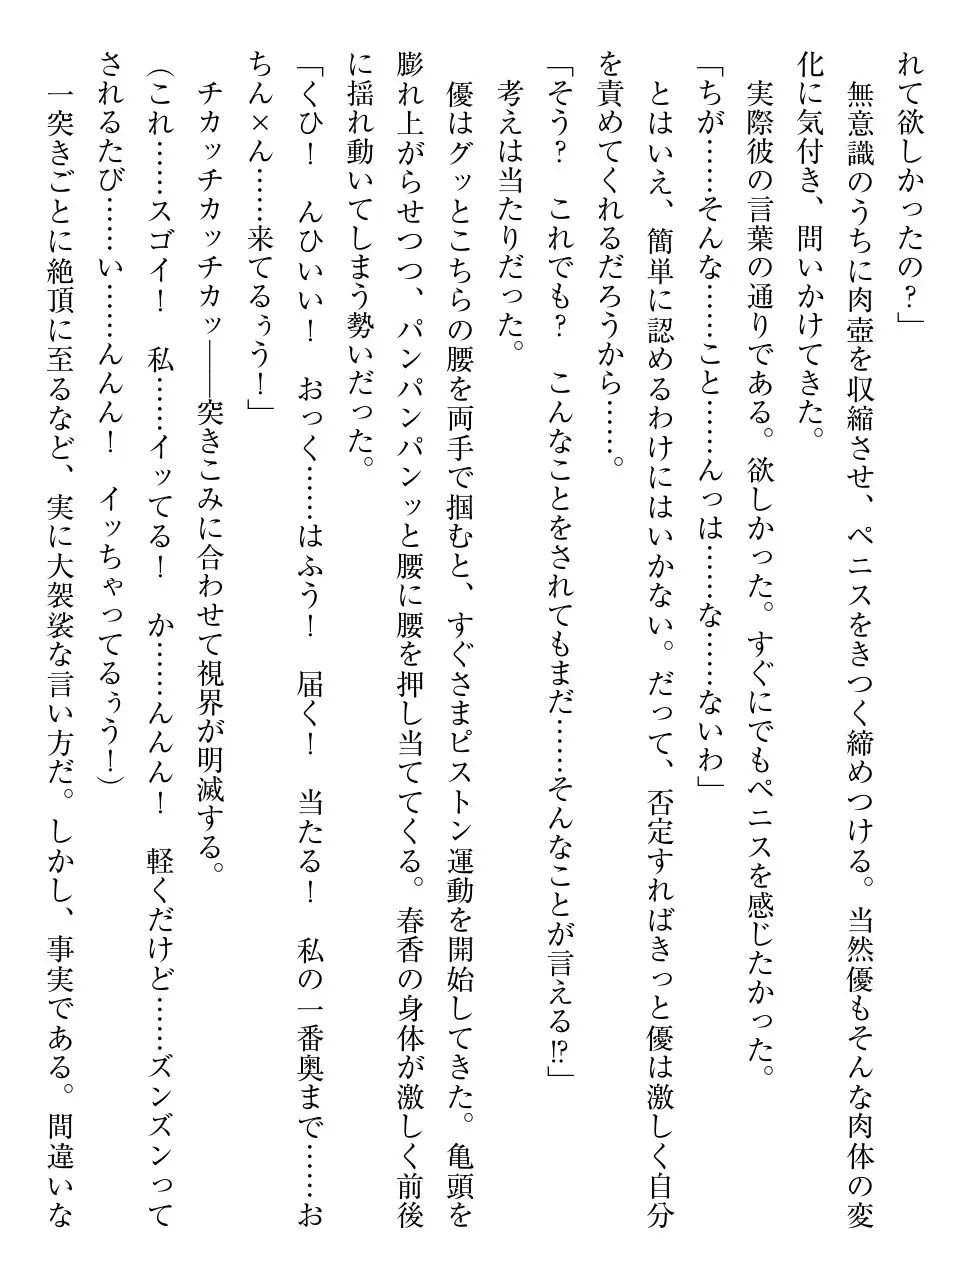 れて欲しかったの？」
　無意識のうちに肉壺を収縮させ、ペニスをきつく締めつける。当然優もそんな肉体の変
化に気付き、問いかけてきた。
　実際彼の言葉の通りである。欲しかった。すぐにでもペニスを感じたかった。
「ちが……そんな……こと……んっは……な……ないわ」
　とはいえ、簡単に認めるわけにはいかない。だって、否定すればきっと優は激しく自分
を責めてくれるだろうから……。
「そう？　これでも？　こんなことをされてもまだ……そんなことが言える⁉」
　考えは当たりだった。
　優はグッとこちらの腰を両手で掴むと、すぐさまピストン運動を開始してきた。亀頭を
膨れ上がらせつつ、パンパンパンッと腰に腰を押し当ててくる。春香の身体が激しく前後
に揺れ動いてしまう勢いだった。
「くひ！　んひいい！　おっく……はふう！　届く！　当たる！　私の一番奥まで……お
ちん×ん……来てるぅう！」
　チカッチカッチカッ――突きこみに合わせて視界が明滅する。
（これ……スゴイ！　私……イッてる！　か……んんん！　軽くだけど……ズンズンって
されるたび……い……んんん！　イッちゃってるぅう！）
　一突きごとに絶頂に至るなど、実に大袈裟な言い方だ。しかし、事実である。間違いな